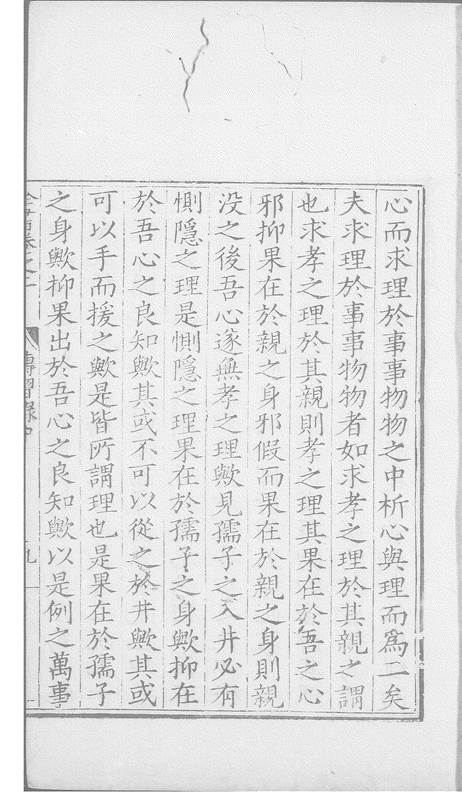 心而求理於事事物物之中析心與理而爲二矣
夫求理於事事物物者如求孝之理於其親之謂
也求孝之理於其親則孝之理其果在於吾之心
邪抑果在於親之身邪假而果在於親之身則親
没之後吾心遂無孝之理歟見孺子之入井必有
惻隱之理是惻隱之理果在於孺子之身歟抑在
於吾心之良知歟其或不可以從之於井歟其或
可以手而援之歟是皆所謂理也是果在於孺子
之身歟抑果出於吾心之良知歟以是例之萬事
傳習錄
九